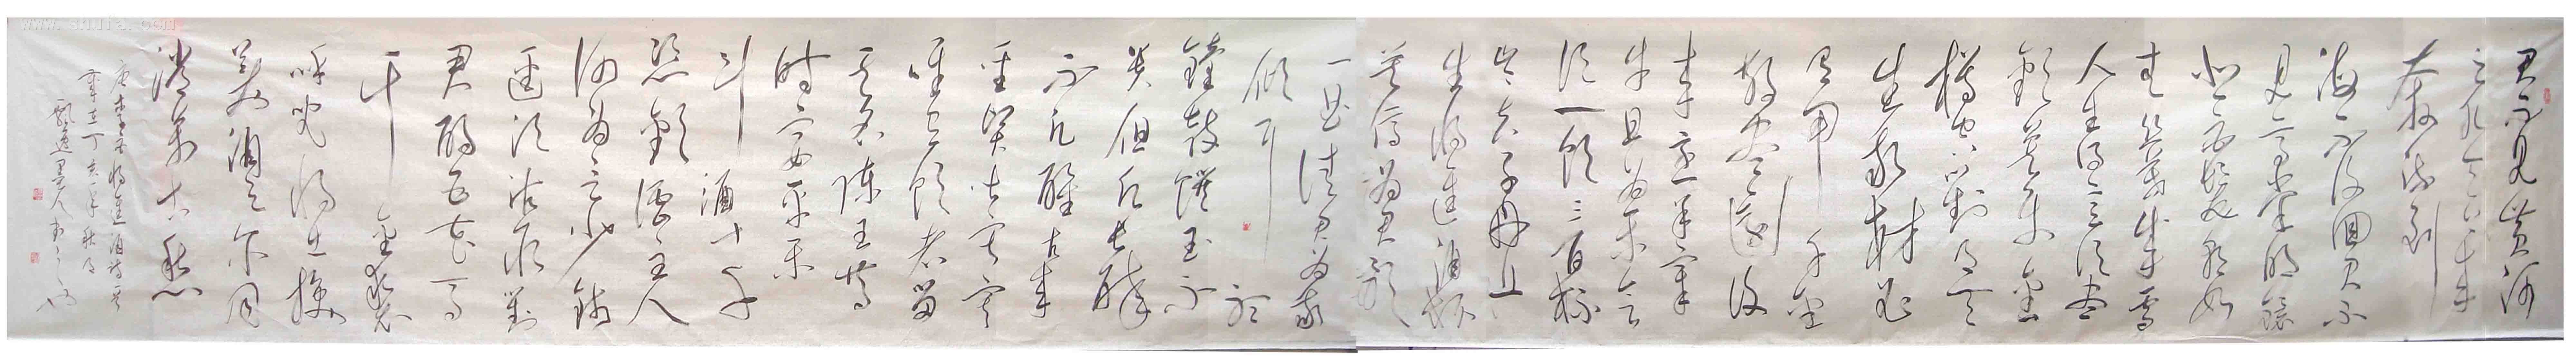 君不见黄河
之水天上来
奔流到
海不复回君不
见高堂明镜
悲白发朝如
青丝暮成雪
人生得意须尽
欢莫使金
樽空对月天
生我材必
有用千金
散尽还复
来烹羊宰
牛且为乐会
须一饮三百杯
岑夫子丹丘
生将进酒杯
莫停与君歌
一曲请君为我
倾耳听
钟鼓馔玉不
足贵但愿长醉
不愿醒古来
圣贤皆寂寞
惟有饮者留
其名陈王昔
时宴平乐
斗酒十千
恣欢谑主人
何为言少钱
径须沽取对
君酌五花马
千金裘
呼儿将出换
美酒与尔同
销万古愁
唐李白将进酒诗一首
岁在丁亥年秋月
飘逸墨人书
www.shufa.com